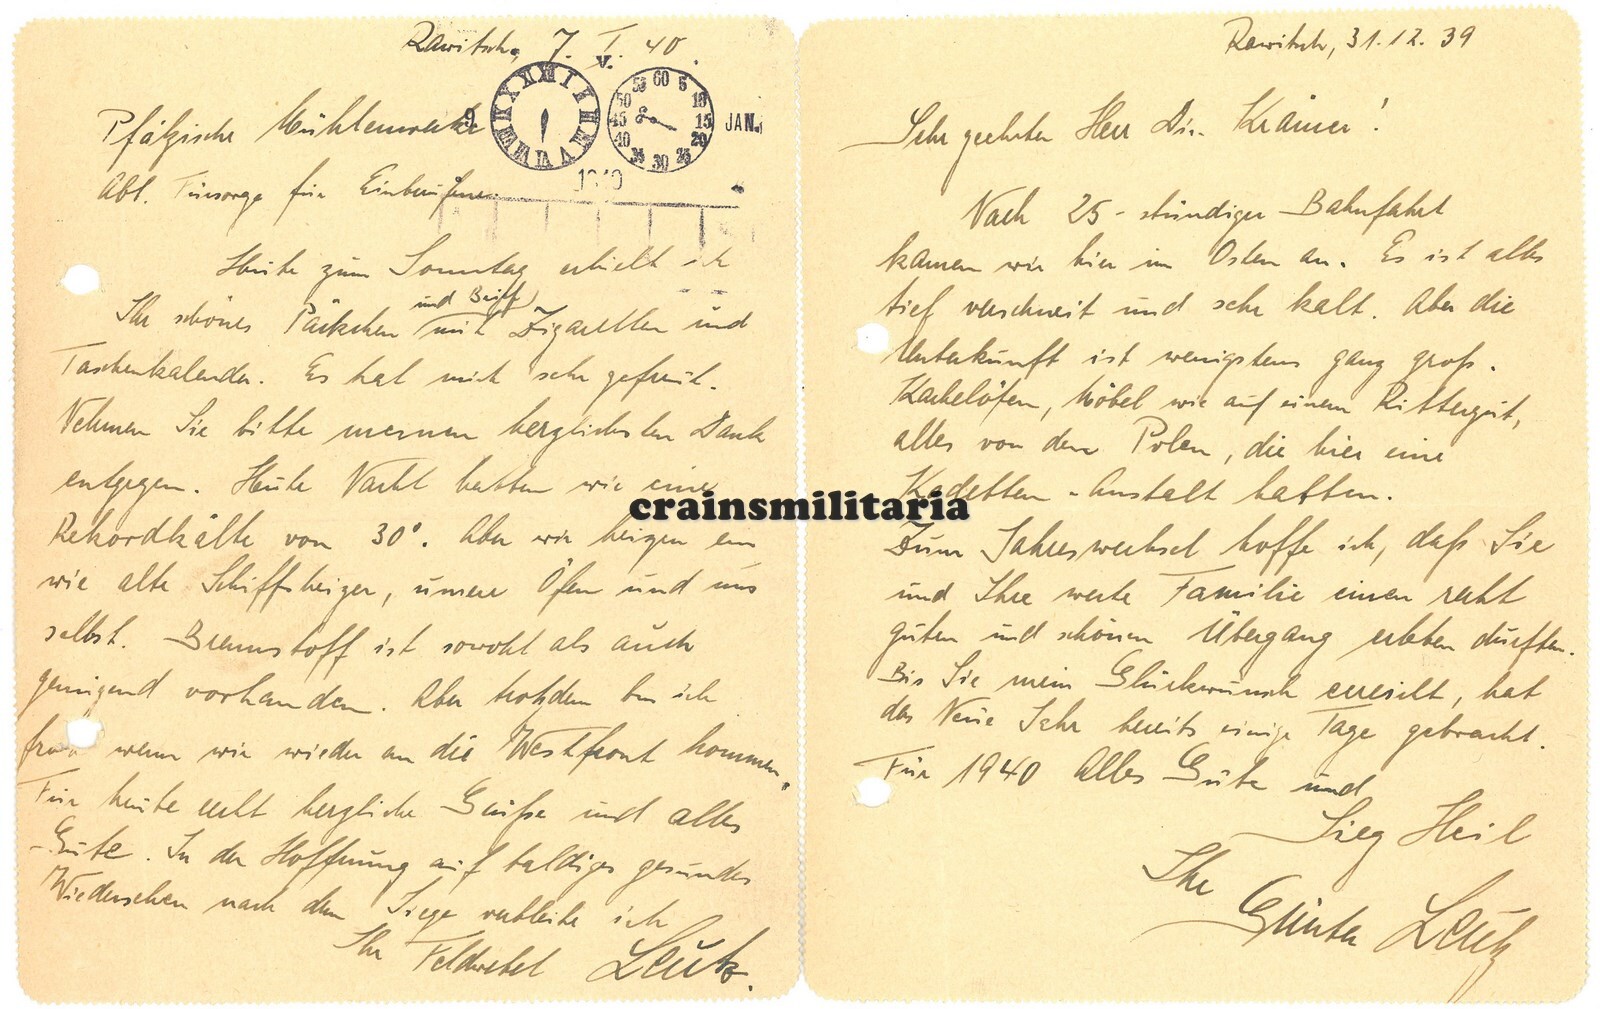 Rawitsch, 7. I. 40
V.
9
JAN.
1940
Pfälzische Mühlenwerke
Abt. Fürsorge für Einberufene.
Heute zum Sonntag erhielt ich
Ihr schönes Päckchen mit Zigaretten und
und Brief
Taschenkalender. Es hat mich sehr gefreut.
Nehmen Sie bitte meinen herzlichsten Dank
entgegen. Heute Nacht hatten wir eine
Rekordkälte von 30°. Aber wir heizen ein
wie alte Schiffsheizer, unsere Öfen und uns
selbst. Brennstoff ist sowohl als auch
genügend vorhanden. Aber trotzdem bin ich
froh wenn wir wieder an die Westfront kommen.
Für heute recht herzliche Grüße und alles
Gute. In der Hoffnung auf baldiges gesundes
Wiedersehen nach dem Siege verbleibe ich
Ihr Feldwebel Leutz.
Rawitsch, 31.12.39
Sehr geehrter Herr Dir. Krämer!
Nach 25-stündiger Bahnfahrt
kamen wir hier im Osten an. Es ist alles
tief verschneit und sehr kalt. Aber die
Unterkunft ist wenigstens ganz groß.
Kachelöfen, Möbel wie auf einem Rittergut,
alles von den Polen, die hier eine
Kadetten-Anstalt hatten.
Zum Jahreswechsel hoffe ich, daß Sie
und Ihre werte Familie einen recht
guten und schönen Übergang erleben durften.
Bis Sie mein Glückwunsch erreicht, hat
das Neue Jahr bereits einige Tage gebracht.
Für 1940 Alles Gute und
Sieg Heil
Ihr
Günter Leutz
crainsmilitaria